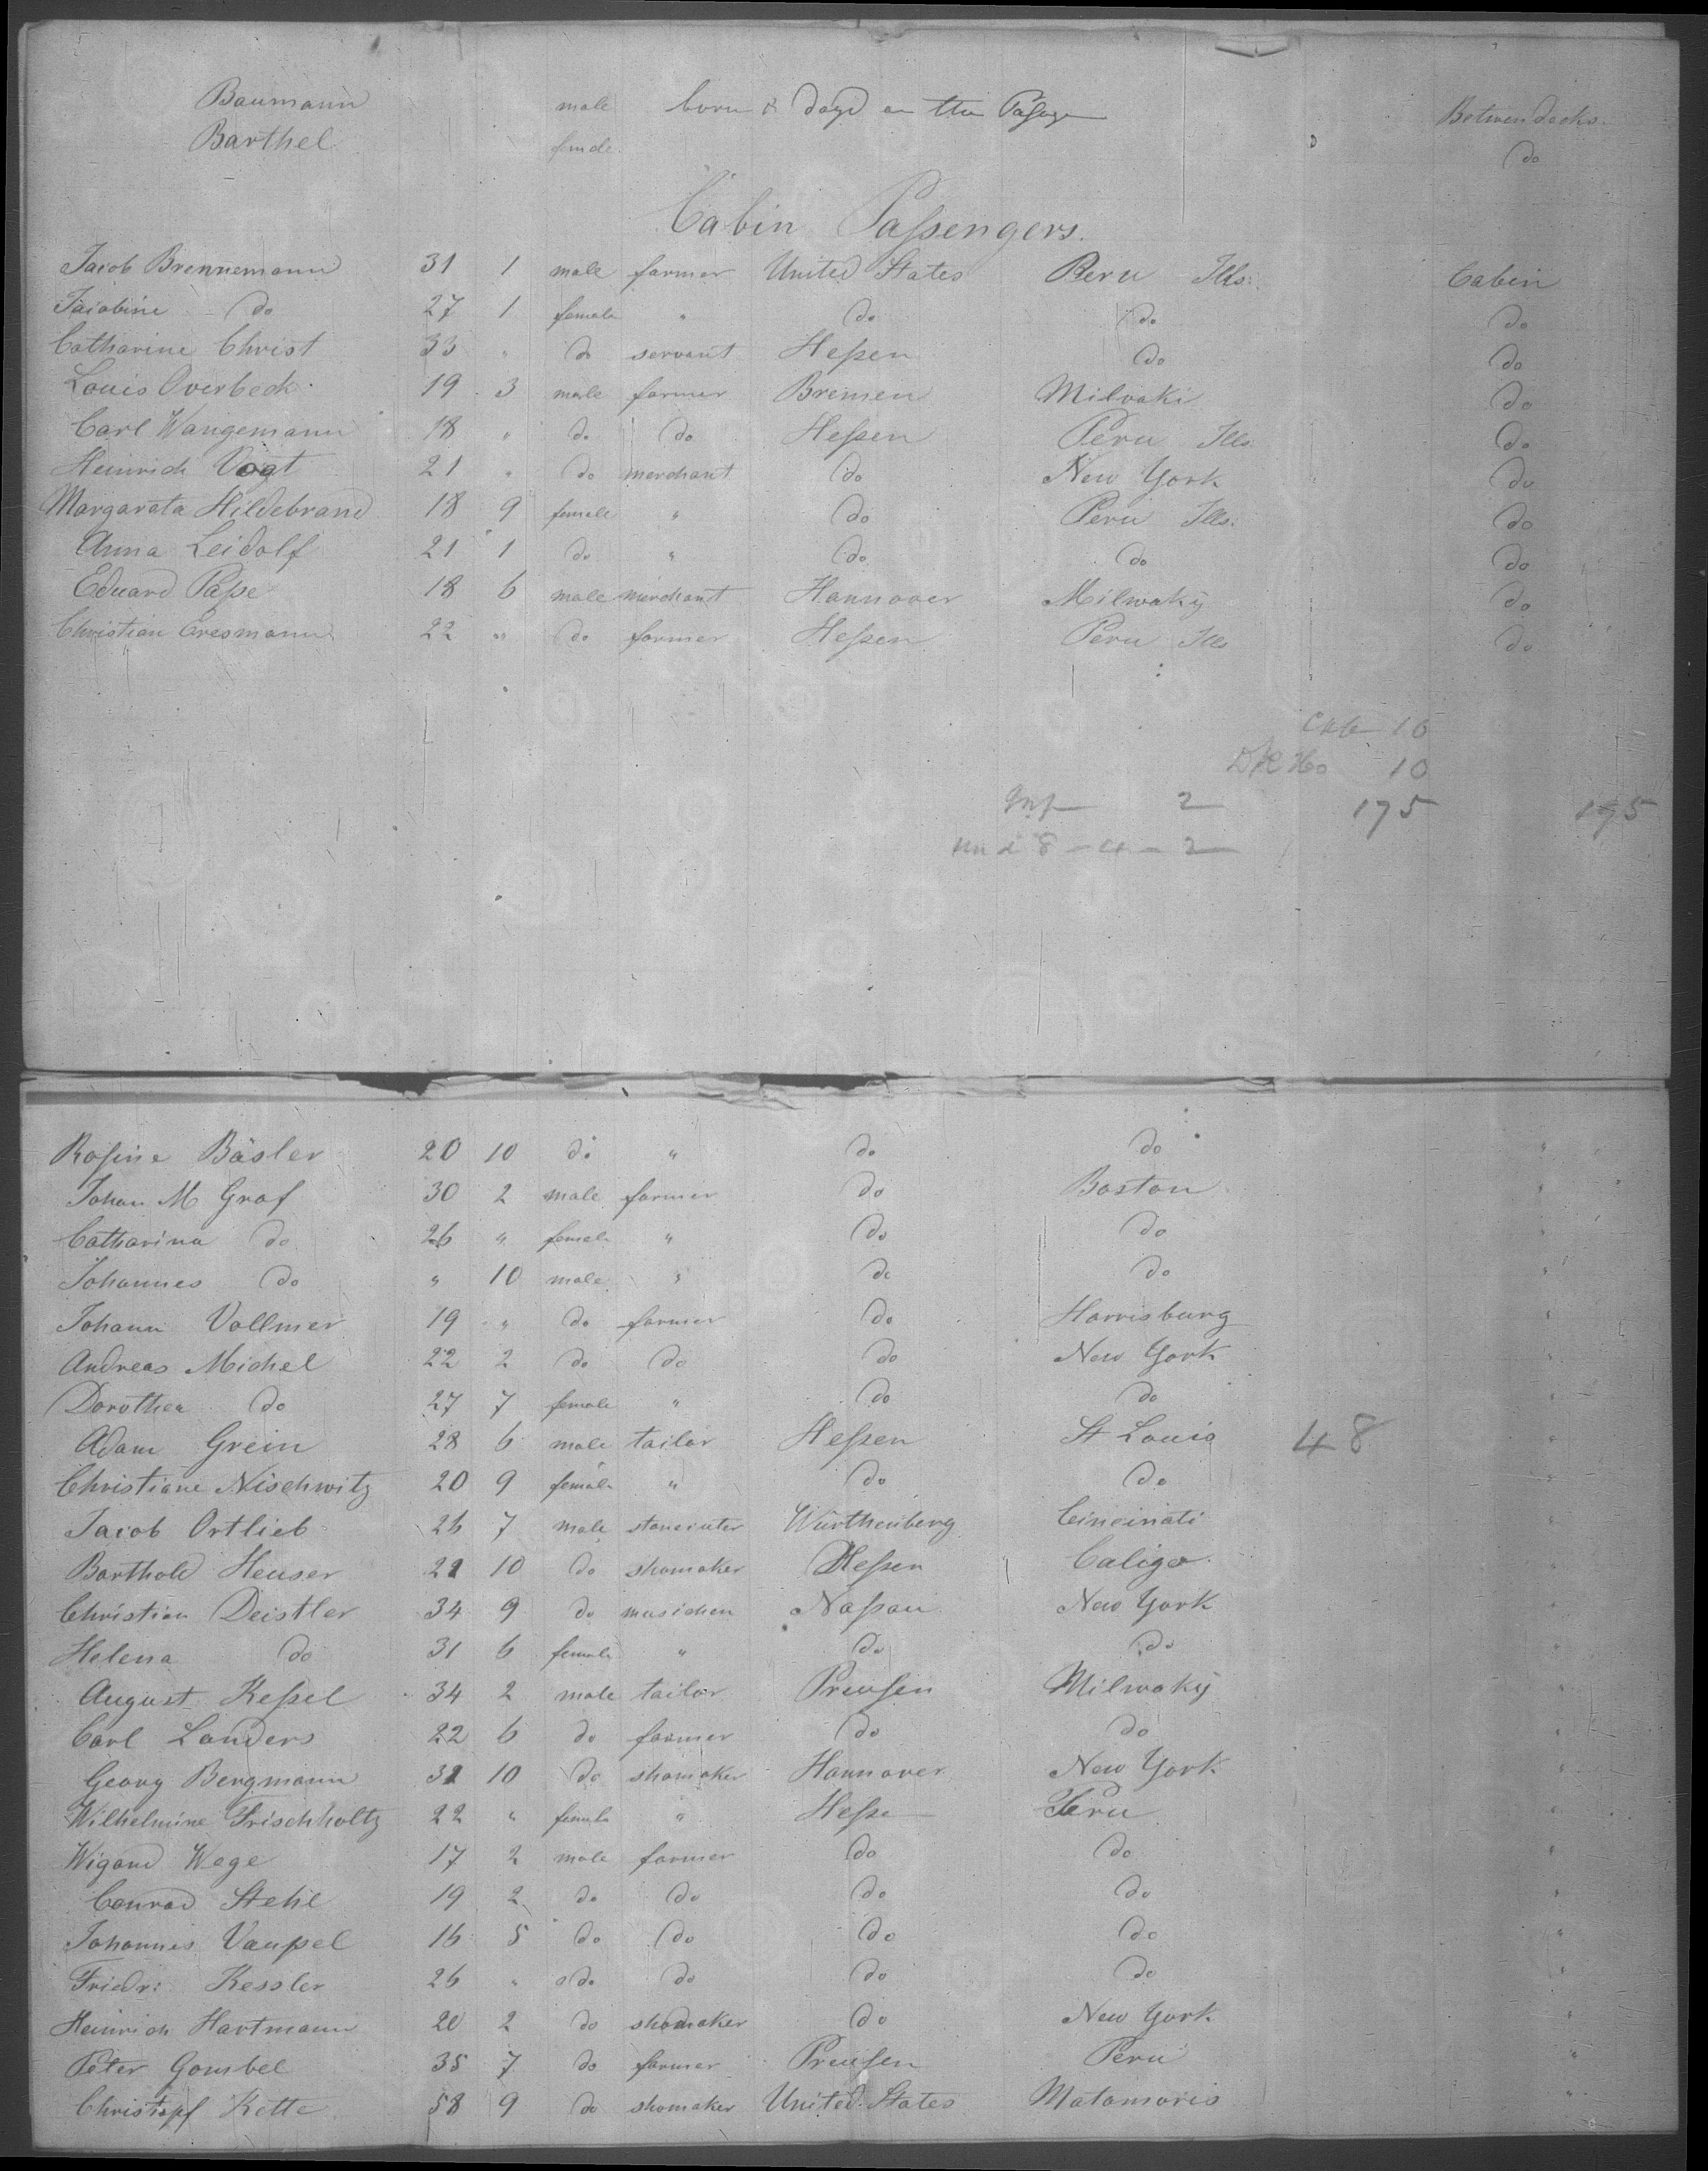 Baumann male born & dayd on the Passage Betwendecks
Barthel female do
Cabin Passengers.
Jacob Brennemann 31 1 male farmer United States Peru Ills: Cabin
Jacobine do 27 1 female " do do do
Catharine Christ 33 " do servant Hessen do do
Louis Overbeck 19 3 male farmer Bremen Milvaki do
Carl Wangemann 18 " do do Hessen Peru Ills. do
Heinrich Vogt 21 " do merchant do New York do
Margarata Hildebrand 18 9 female " do Peru Ills: do
Anna Leidolf 21 1 do " do do do
Eduard Passe 18 6 male merchant Hannover Milwaky do
Christian Cresmann 22 " do farmer Hessen Peru Ills do
10
10
2 175 175
8 - 4 - 2
Rosine Bäsler 20 10 do " do do "
Johan M Graf 30 2 male farmer do Boston "
Catharina do 26 " female " do do "
Johannes do " 10 male " do do "
Johann Vollmer 19 " do farmer do Harrisburg "
Andreas Michel 22 2 do do do New York "
Dorothea do 27 7 female " do do "
Adam Grein 28 6 male tailor Hessen St Louis 48 "
Christiane Nischwitz 20 9 female " do do "
Jacob Ortlieb 26 7 male stonecuter Würthenberg Cincinati "
Barthold Heuser 21 10 do shomaker Hessen Caligo "
Christian Deistler 34 9 do musichen Nassau New York "
Helena do 31 6 female " do do "
August Kessel 34 2 male tailor Preussen Milwaky "
Carl Landers 22 6 do farmer do do "
Georg Bergmann 31 10 do shomaker Hannover New York "
Wilhelmine Frischholtz 22 " female " Hesse Peru "
Wigand Wege 17 2 male farmer do do "
Conrad Stehl 19 2 do do do do "
Johannes Vaupel 16 5 do do do do "
Friedr: Kessler 26 " do do do do "
Heinrich Hartmann 20 2 do shomaker do New York "
Peter Gombel 35 7 do farmer Preussen Peru "
Christopf Kette 58 9 do shomaker United States Matamoris "